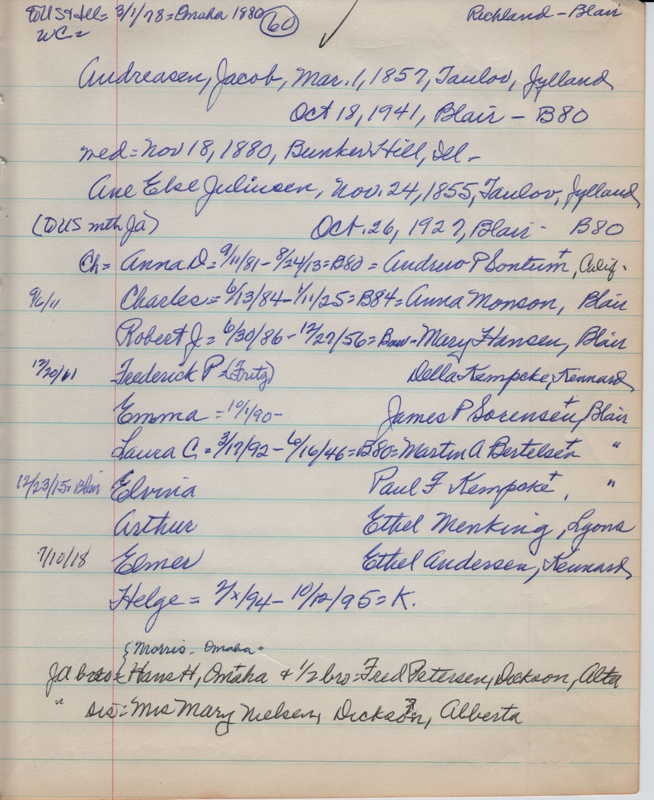 TOUS & Ill = 3/1/78 = Omaha 1880 (60) ✓ Richland - Blair
WC =
Andreasen, Jacob, Mar. 1, 1857, Taulov, Jylland
Oct 18, 1941, Blair - B80
wed = Nov 18, 1880, Bunker Hill, Ill -
Ane Else Juliussen, Nov. 24, 1855, Taulov, Jylland
(TOUS mth Ja) Oct. 26, 1927, Blair - B80
Ch = Anna D = 9/11/81 - 8/24/13 = B80 = Andrew P Sontum+, Calif.
9/6/11 Charles = 6/13/84 - 1/11/25 = B84 = Anna Monson, Blair
Robert J = 6/30/86 - 12/27/56 = Mary Hansen, Blair
12/20/11 Frederick P = (Fritz) Della Kempcke, Kennard
Emma = 10/1/90 - James P Sorensen+, Blair
Laura C. = 3/17/92 - 6/16/46 = B80 = Martin A Bertelsen+ "
12/23/15 = Blair Elvina Paul F Kempcke+, "
Arthur Ethel Menking, Lyons
7/10/18 Elmer Ethel Andersen, Kennard
Helge = 2/x/94 - 10/12/95 = K.
{Morris - Omaha -
Ja bro = Hans H, Omaha & 1/2 bro = Fred Petersen, Dickson, Alta
" sis = Mrs Mary Nielsen, Dickson, Alberta